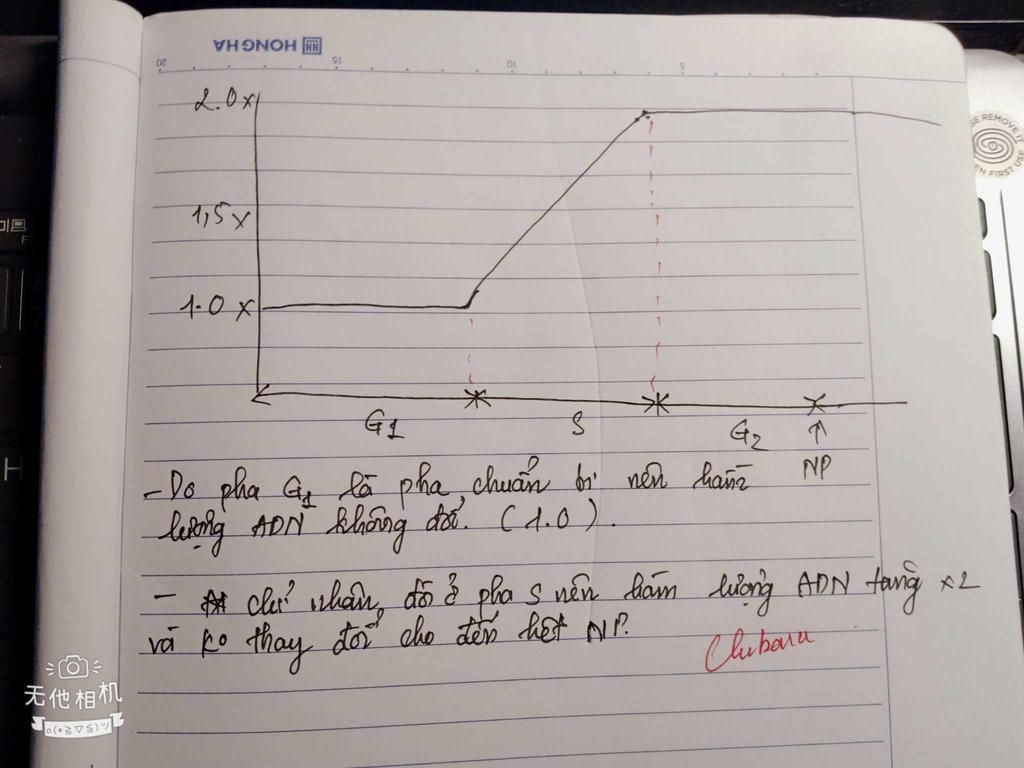 HONG HA
20 15 10 5
2.0x
1,5x
1.0x
G1 S G2 ↑
NP
- Do pha G1 là pha chuẩn bị nên hàm
lượng ADN không đổi. (1.0).
- chỉ nhân đôi ở pha S nên hàm lượng ADN tăng x2
và ko thay đổi cho đến hết NP.
Chubaru
SE REMOVE I
EN FIRST USE
H
无他相机
o(*≧▽≦)ツ